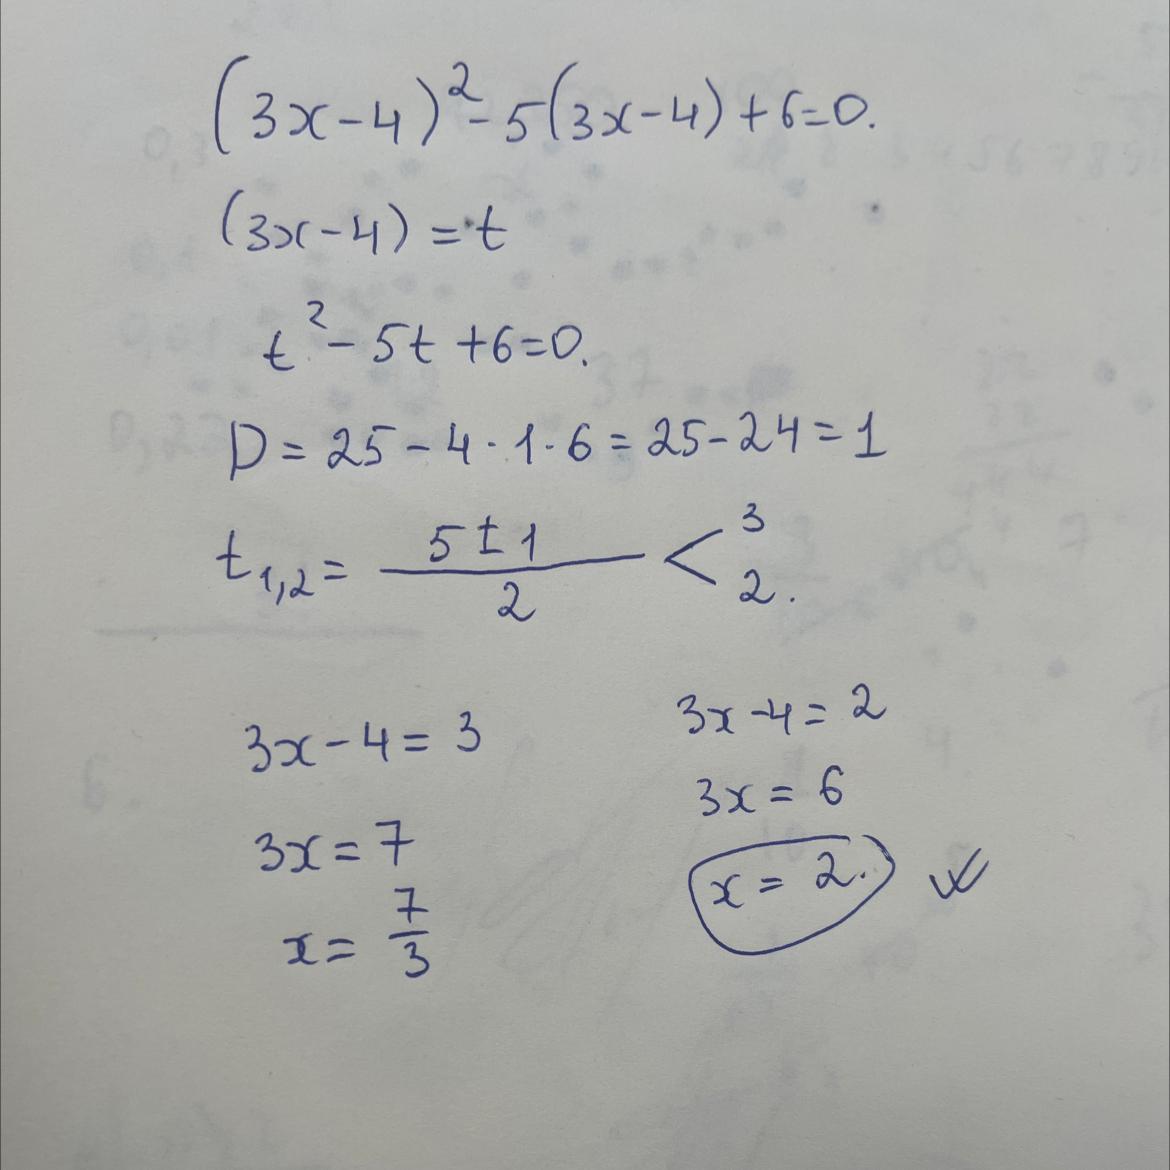 (3x-4)² - 5(3x-4) + 6 = 0.
(3x-4) = t
t² - 5t + 6 = 0.
D = 25 - 4 · 1 · 6 = 25 - 24 = 1
t₁,₂ = (5 ± 1)/2 < 3 2.
3x - 4 = 3
3x = 7
x = 7/3
3x - 4 = 2
3x = 6
x = 2.